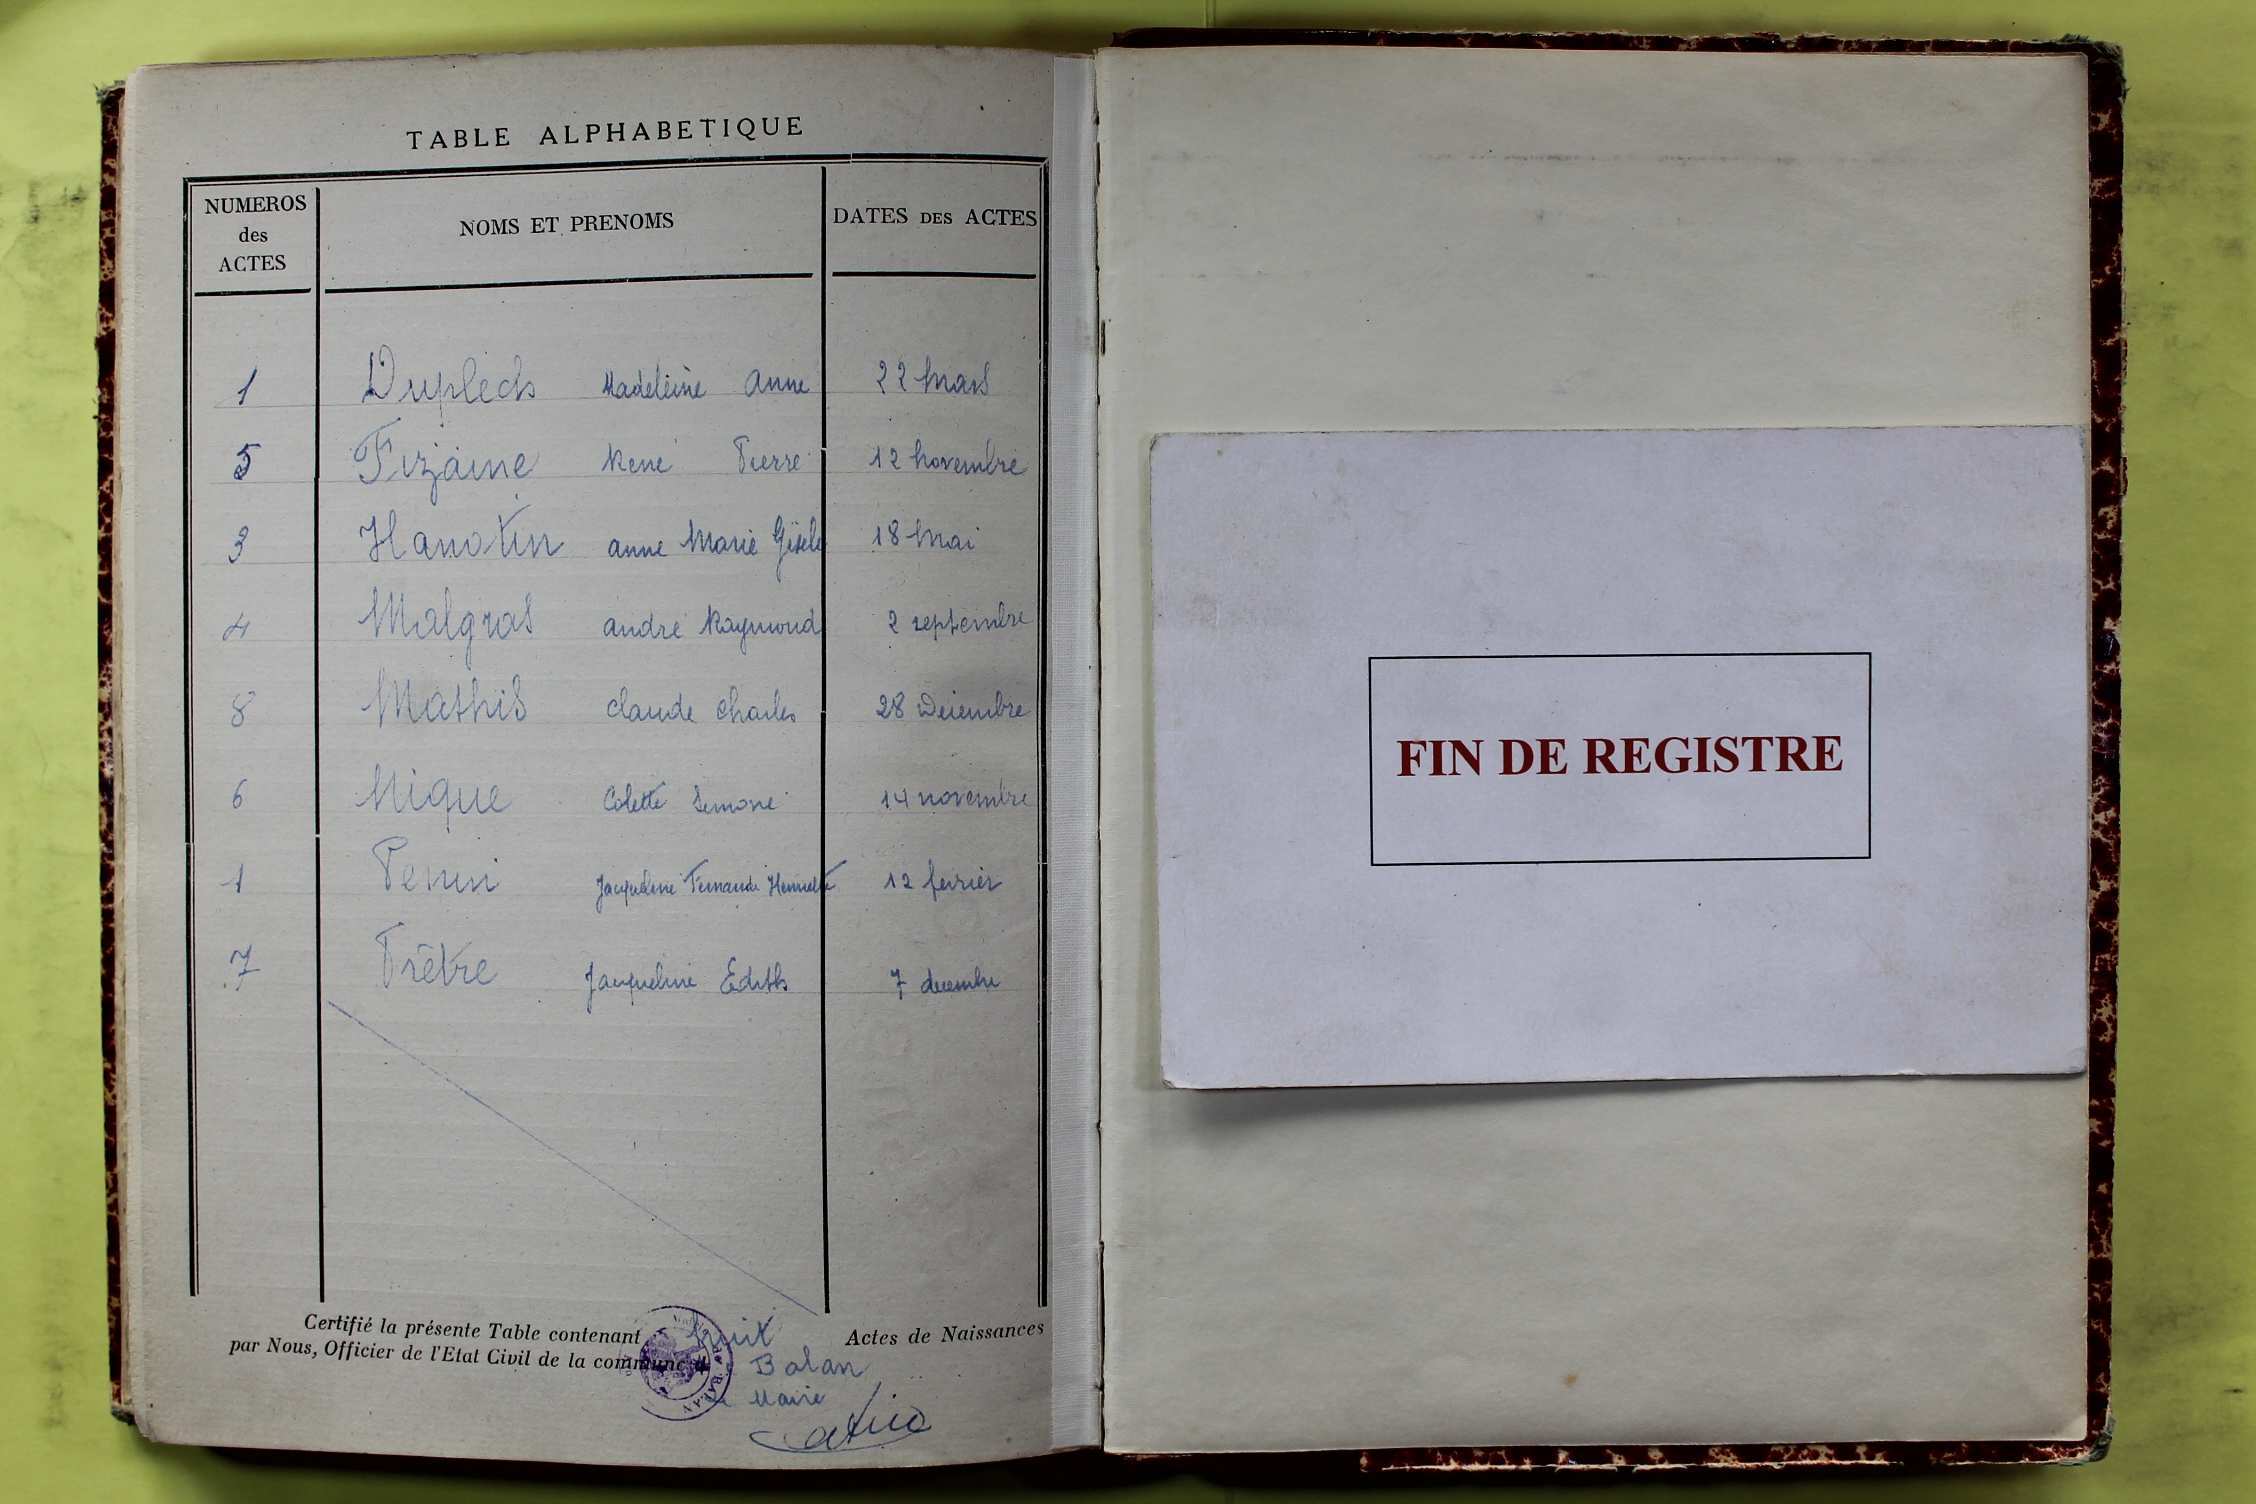 TABLE ALPHABETIQUE
NUMEROS des ACTES NOMS ET PRENOMS DATES DES ACTES
1 Duplech Madeleine Anne 22 Mars
5 Fizaine René Pierre 12 novembre
3 Hanotin anne Marie Gisèle 18 Mai
4 Malgras andré Raymond 2 septembre
8 Mathis Claude Charles 28 Décembre
6 Mique Colette Simone 14 novembre
1 Jacqueline Fernande Henriette 12 février
7 Prêtre Jacqueline Edith 7 decembre
Certifié la présente Table contenant huit Actes de Naissances
par Nous, Officier de l'Etat Civil de la commune d Balan
Maire
BALAN
FIN DE REGISTRE